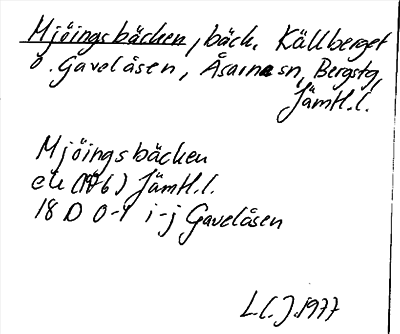 Mjöingsbäcken, bäck. Källberget
o. Gavelåsen, Åsarne sn, Bergstg,
Jämtl.l.
Mjöingsbäcken
ek (1976) Jämtl.l.
18 D 0-1 i-j Gavelåsen
L.C.J. 1977